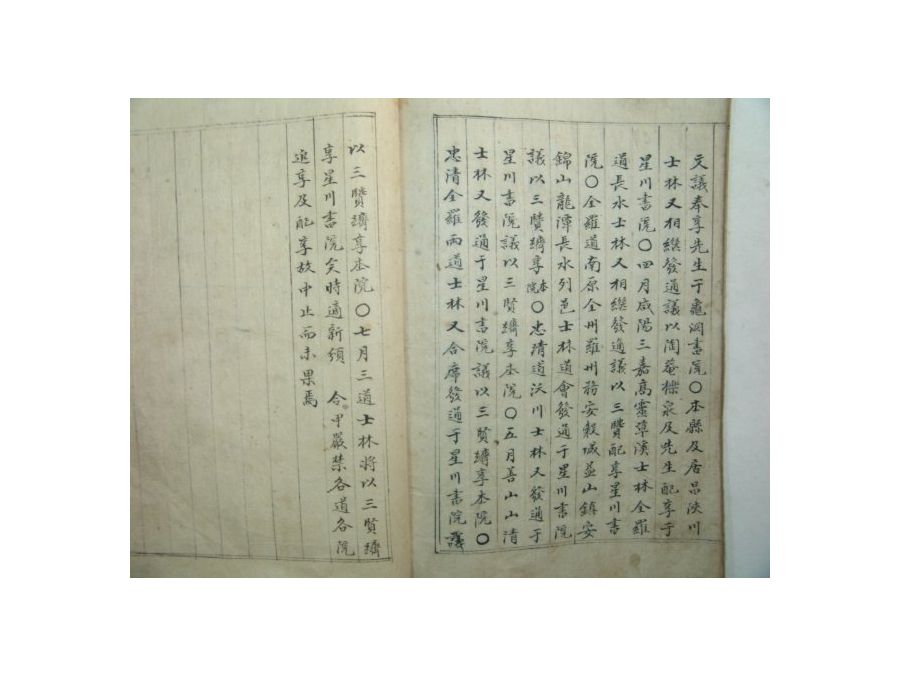 文議奉享先生于龜洞書院〇本縣及居昌陜川
士林又相繼發通議以陶菴櫟泉及先生配享于
星川書院〇四月咸陽三嘉高靈草溪士林全羅
道長水士林又相繼發通議以三賢配享星川書
院〇全羅道南原全州羅州務安穀城益山鎮安
錦山龍潭長水列邑士林道會發通于星川書院
議以三賢躋享本院〇忠清道沃川士林又發通于
星川書院議以三賢躋享本院〇五月善山山清
士林又發通于星川書院議以三賢躋享本院〇
忠清全羅兩道士林又合席發通于星川書院議
以三賢躋享本院〇七月三道士林將以三賢躋
享星川書院矣時適新頒 令甲嚴禁各道各院
追享及配享故中止而未果焉